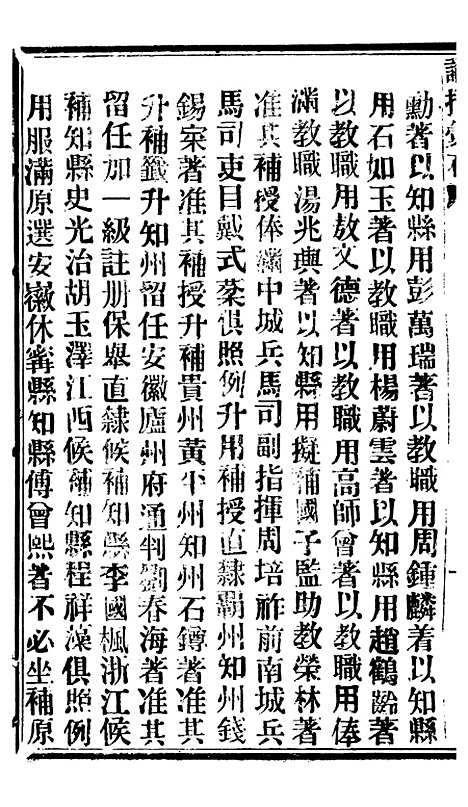 勳著以知縣用彭萬瑞著以教職用周鍾麟着以知縣
用石如玉著以教職用楊蔚雲著以知縣用趙鶴齡著
以教職用敖文德著以教職用高師曾著以教職用俸
滿教職湯兆輿著以知縣用擬補國子監助教榮林著
准其補授俸滿中城兵馬司副指揮周培祚前南城兵
馬司吏目戴式棻俱照例升用補授直隸霸州知州錢
錫寀著准其補授升補貴州黃平州知州石鐏著准其
升補籤升知州留任安徽廬州府通判劉春海著准其
留任加一級註册保舉直隸候補知縣李國楓浙江候
補知縣史光治胡玉澤江西候補知縣程祥藻俱照例
用服滿原選安徽休甯縣知縣傅曾熙着不必坐補原